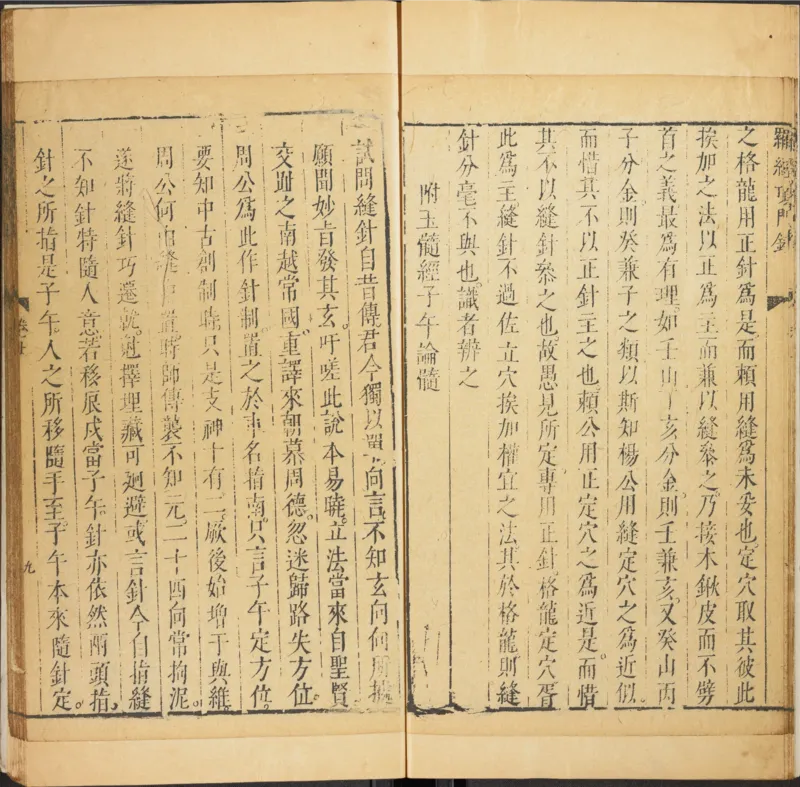 羅經頂門針
之格龍用正針為是而賴用縫為未妥也定穴取其彼此
挨加之法以正為主而兼以縫叅之乃接木鍬皮而不劈
首之義最為有理如壬山丁亥分金則壬兼亥又癸山丙
子分金則癸兼子之類以斯知楊公用縫定穴之為近似
而惜其不以正針主之也賴公用正定穴之為近是而惜
其不以縫針叅之也故愚見所定專用正針格龍定穴胥
此為主縫針不過佐立穴挨加權宜之法其於格龍則縫
針分毫不與也識者辨之
附玉髓經子午論髓
試問縫針自昔傳君今獨以單向言不知玄向何所據
願聞妙旨發其玄吁嗟此說本易曉立法當來自聖賢
交趾之南越常國重譯來朝慕周德忽迷歸路失方位
周公為此作針制置之於車名指南只言子午定方位
要知中古創制時只是支神十有二厥後始增干與維
周公何由縫中置時師傳襲不知元二十四向常拘泥
遂將縫針巧遷就選擇埋藏可廻避或言針今自指縫
不知針特隨人意若移辰戌當子午針亦依然兩頭指
針之所指是子午人之所移隨手至子午本來隨針定
九